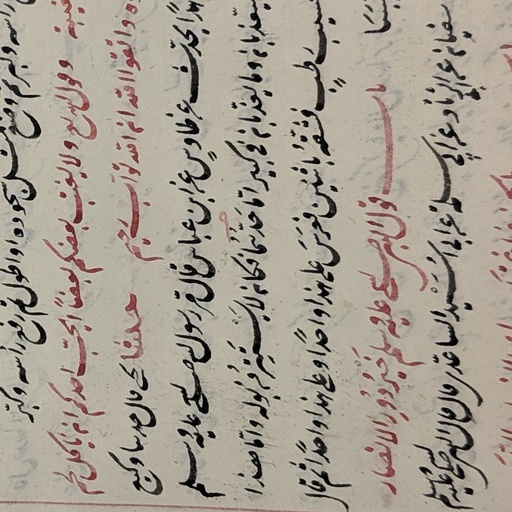 رأسه وكبر ثم وضع مثل سجوده او اطول ثم رفع رأسه وكبر
غيبة وقول الله تع ولا يغتب بعضكم بعضا ايحب احدكم ان ياكل لحم
واتقوا الله ان الله تواب رحيم حدثنا يحيى قال حدثنا وكيع
مجاهدًا يحدث عن طاوس عن ابن عباس قال مر رسول الله صلى الله عليه وسلم
ليعذبان وما يعذبان في كبير اما احدهما فكان لا يستتر من بوله واما هذا
بعسيب رطب فشقه باثنين فغرس على هذا واحدًا وعلى هذا واحدًا ثم قال
ييبسا باب قول النبي صلى الله عليه وسلم خير دور الانصار
سفيان عن ابي الزناد عن ابي سلمة عن ابي اسيد الساعدي قال قال النبي صلى الله عليه وسلم